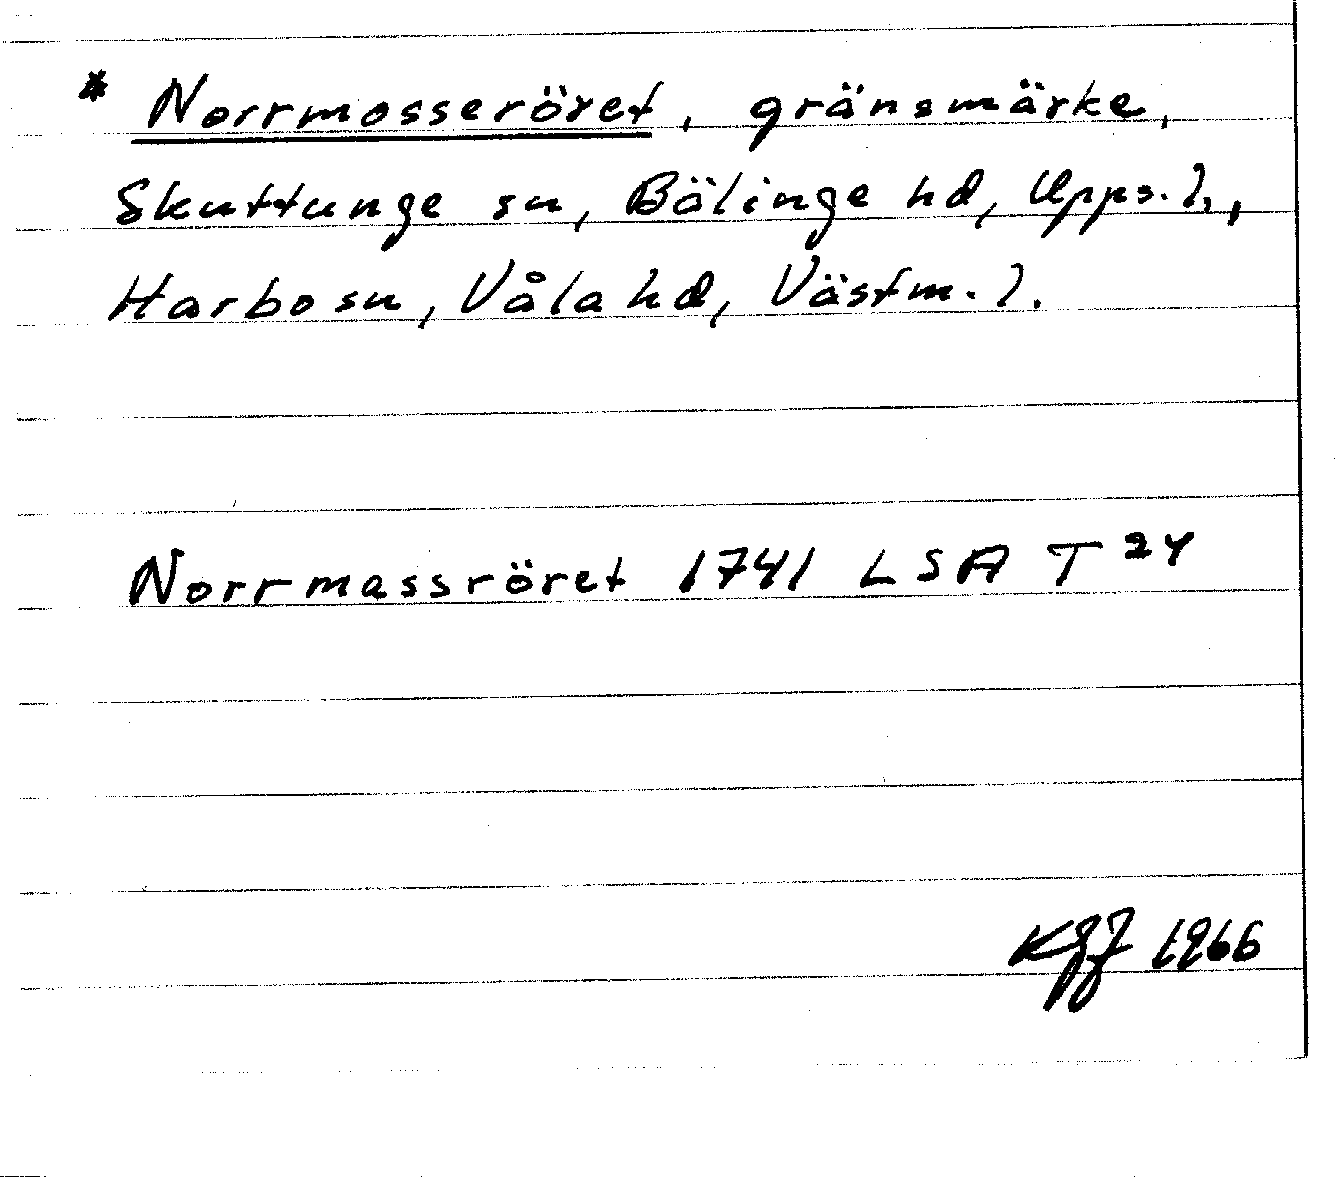 * Norrmosseröret, gränsmärke,
Skuttunge sn, Bälinge hd, Upps. l.,
Harbo sn, Våla hd, Västm. l.
Norrmassröret 1741 LSA T 24
1966